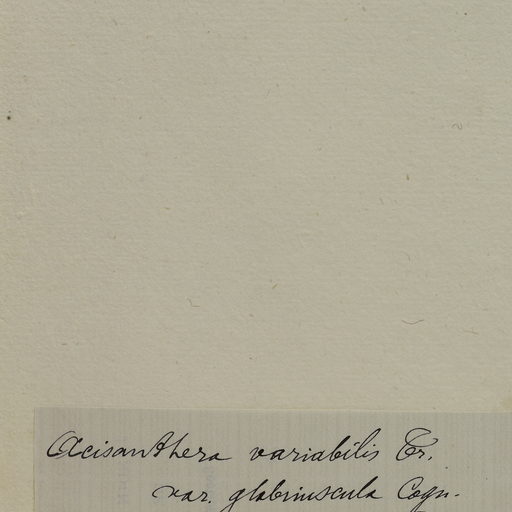 Acisanthera variabilis Tr.
var. glabriuscula Cogn.